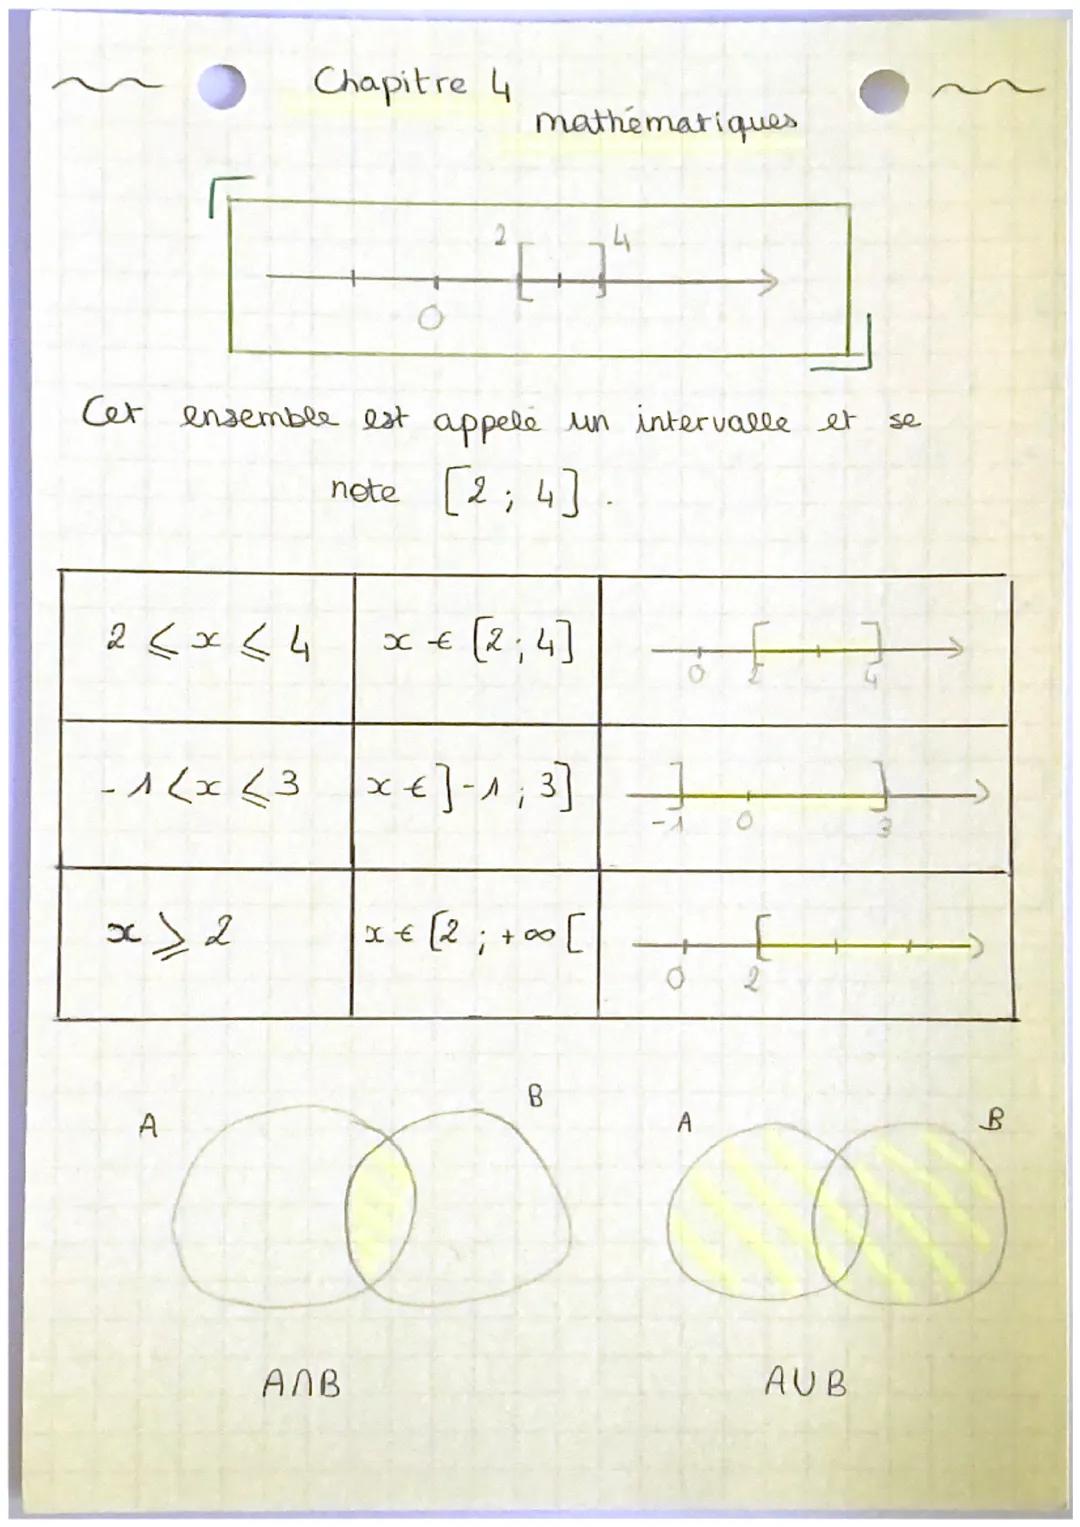 Chapitre 4
mathématiques
2 [ ] 4
0
Cet ensemble est appelé un intervalle et se
note [2 ; 4].
2 ⩽ x ⩽ 4
x ∈ [2 ; 4]
[ ]
0 2 4
-1 < x ⩽ 3
x ∈ ]-1 ; 3]
] ]
-1 0 3
x ⩾ 2
x ∈ [2 ; +∞[
[
0 2
A B
A B
A∩B
A∪B